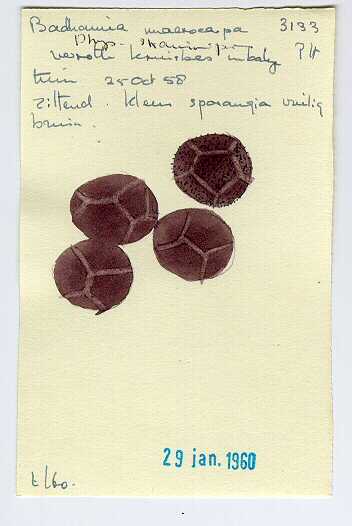 Badhamia macrocarpa 3133
Phys.
verrotte kruisbes
tuin 25 Oct 58
zittend. kleur sporangia vuilig
bruin.
29 jan. 1960
t/60.